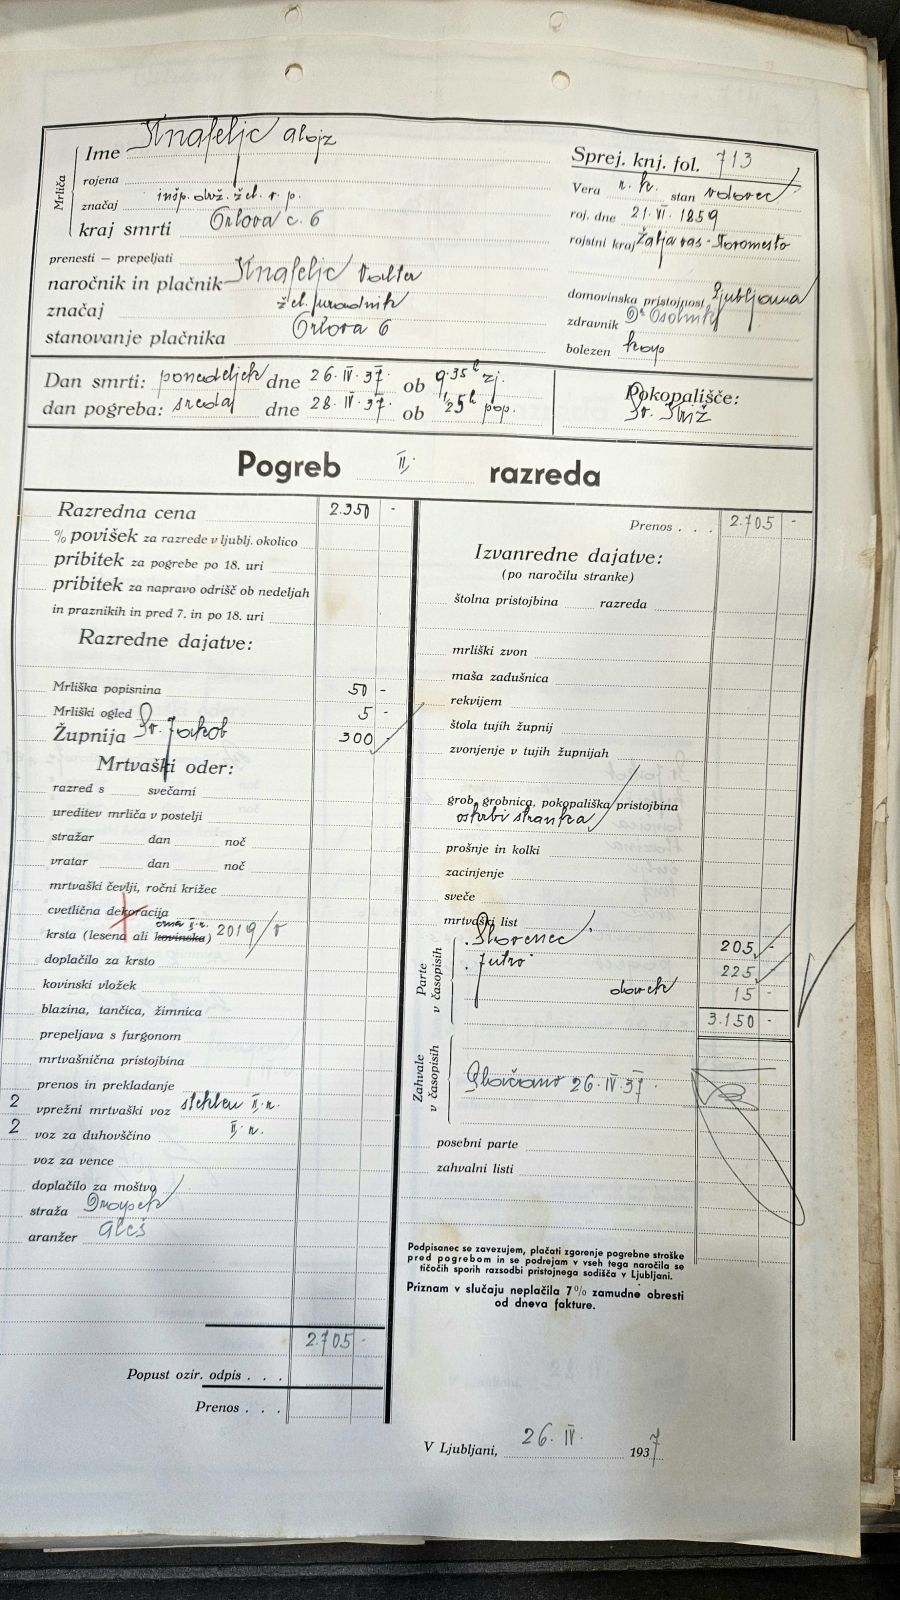 Mrliča
Ime Knafeljc Alojz
rojena
značaj insp. drž. žel. v. p.
kraj smrti Orlova c. 6
prenesti – prepeljati
naročnik in plačnik Knafeljc Valter
značaj žel. uradnik
stanovanje plačnika Orlova 6
Sprej. knj. fol. 713
Vera r. k. stan vdovec
roj. dne 21. VI. 1859
rojstni kraj vas - Novomesto
domovinska pristojnost Ljubljana
zdravnik Dr
bolezen kap
Dan smrti: ponedeljek dne 26. IV. 37. ob 9.35h zj.
dan pogreba: sreda dne 28. IV. 37. ob 1/25h pop.
Pokopališče:
Sv. Križ
Pogreb II. razreda
Razredna cena 2.350 -
% povišek za razrede v ljublj. okolico
pribitek za pogrebe po 18. uri
pribitek za napravo odrišč ob nedeljah
in praznikih in pred 7. in po 18. uri
Razredne dajatve:
Mrliška popisnina 50 -
Mrliški ogled 5 -
Župnija Sv. Jakob 300 -
Mrtvaški oder:
razred s svečami
ureditev mrliča v postelji
stražar dan noč
vratar dan noč
mrtvaški čevlji, ročni križec
cvetlična dekoracija
črna II. r.
krsta (lesena ali kovinska) 2019/
doplačilo za krsto
kovinski vložek
blazina, tančica, žimnica
prepeljava s furgonom
mrtvašnična pristojbina
prenos in prekladanje
2 vprežni mrtvaški voz steklen II. r.
2 voz za duhovščino II. r.
voz za vence
doplačilo za moštvo
straža
aranžer Aleš
2.705 -
Popust ozir. odpis . . .
Prenos . . .
Prenos . . . 2.705 -
Izvanredne dajatve:
(po naročilu stranke)
štolna pristojbina razreda
mrliški zvon
maša zadušnica
rekvijem
štola tujih župnij
zvonjenje v tujih župnijah
grob, grobnica, pokopališka pristojbina
oskrbi stranka
prošnje in kolki
zacinjenje
sveče
mrtvaški list
Parte
v časopisih
Slovenec 205 -
Jutro 225 -
davek 15 -
3.150 -
Zahvale
v časopisih
Plačano 26. IV. 37.
posebni parte
zahvalni listi
Podpisanec se zavezujem, plačati zgorenje pogrebne stroške
pred pogrebom in se podrejam v vseh tega naročila se
tičočih sporih razsodbi pristojnega sodišča v Ljubljani.
Priznam v slučaju neplačila 7% zamudne obresti
od dneva fakture.
V Ljubljani, 26. IV. 1937